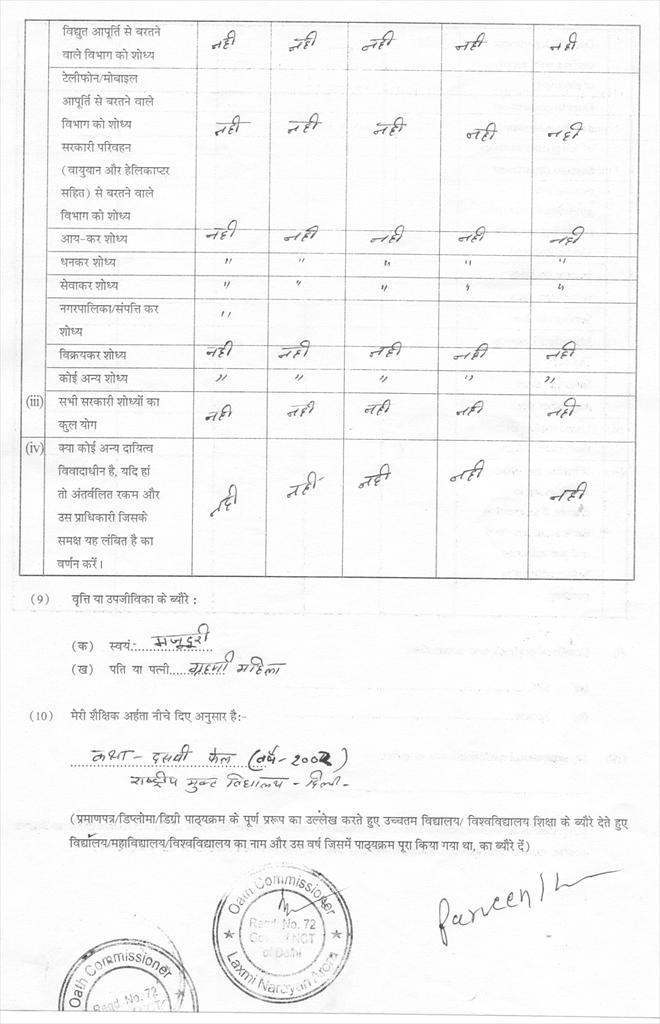 विद्युत आपूर्ति से बरतने
वाले विभाग को शोध्य
नही नही नही नही नही
टेलीफोन/मोबाइल
आपूर्ति से बरतने वाले
विभाग को शोध्य
नही नही नही नही नही
सरकारी परिवहन
(वायुयान और हेलिकाप्टर
सहित) से बरतने वाले
विभाग को शोध्य
आय-कर शोध्य नही नही नही नही नही
धनकर शोध्य " " " " "
सेवाकर शोध्य " " " " "
नगरपालिका/संपत्ति कर "
शोध्य
विक्रयकर शोध्य नही नही नही नही नही
कोई अन्य शोध्य " " " " "
(iii) सभी सरकारी शोध्यों का
कुल योग
नही नही नही नही नही
(iv) क्या कोई अन्य दायित्व
विवादाधीन है, यदि हां
तो अंतर्वलित रकम और
उस प्राधिकारी जिसके
समक्ष यह लंबित है का
वर्णन करें।
नही नही नही नही नही
(9) वृत्ति या उपजीविका के ब्यौरे :
(क) स्वयं:- मजदूरी
(ख) पति या पत्नी ग्रहणी महिला
(10) मेरी शैक्षिक अर्हता नीचे दिए अनुसार है:-
कक्षा - दसवी फेल (वर्ष-2002)
राष्ट्रीय मुक्त विद्यालय - दिल्ली-
(प्रमाणपत्र/डिप्लोमा/डिग्री पाठ्यक्रम के पूर्ण प्ररूप का उल्लेख करते हुए उच्चतम विद्यालय/ विश्वविद्यालय शिक्षा के ब्यौरे देते हुए
विद्यालय/महाविद्यालय/विश्वविद्यालय का नाम और उस वर्ष जिसमें पाठ्यक्रम पूरा किया गया था, का ब्यौरे दें)
Oath Commissioner
Regd. No. 72
Govt. of NCT
of Delhi
Laxmi Narayan Arora
Parveen
Oath Commissioner
Regd. No. 72